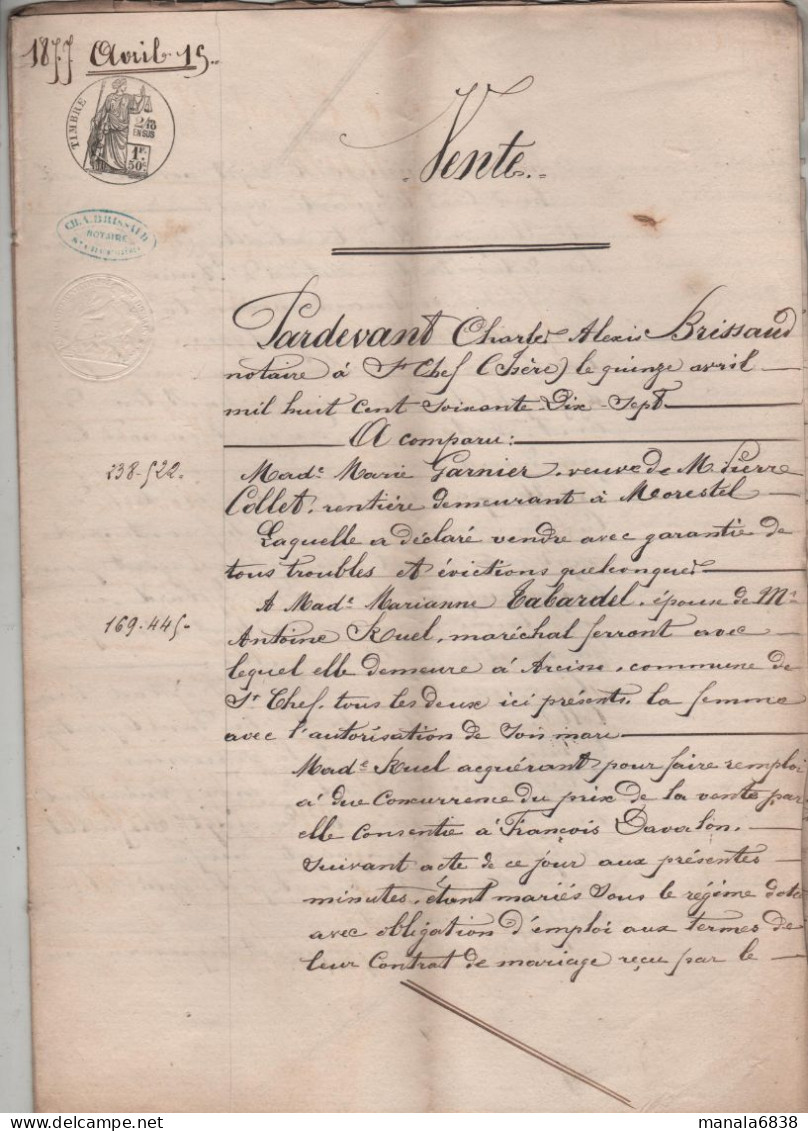 1877 Avril 15
TIMBRE
2/10
EN SUS
1F.
50C.
Vente
CH. A. BRISSAUD
NOTAIRE
Pardevant Charles Alexis Brissaud
notaire à St Chef (Isère) le quinze avril
mil huit cent soixante Dix-Sept
A comparu:
238-522.
Made Marie Garnier, veuve de M. Pierre
Collet, rentière demeurant à Morestel
Laquelle a déclaré vendre avec garantie de
tous troubles et évictions quelconques
A Made Marianne Tabardel, épouse de Mr
169-445-
Antoine Ruel, maréchal ferront avec
lequel elle demeure à Arcisse, commune de
St Chef, tous les deux ici présents, la femme
avec l'autorisation de son mari
Made Ruel acquérant pour faire remploi
à due concurrence du prix de la vente par
elle consentie à François Davalon,
suivant acte de ce jour aux présentes
minutes, étant mariés sous le régime dotal
avec obligation d'emploi aux termes de
leur contrat de mariage reçu par le
manala6838